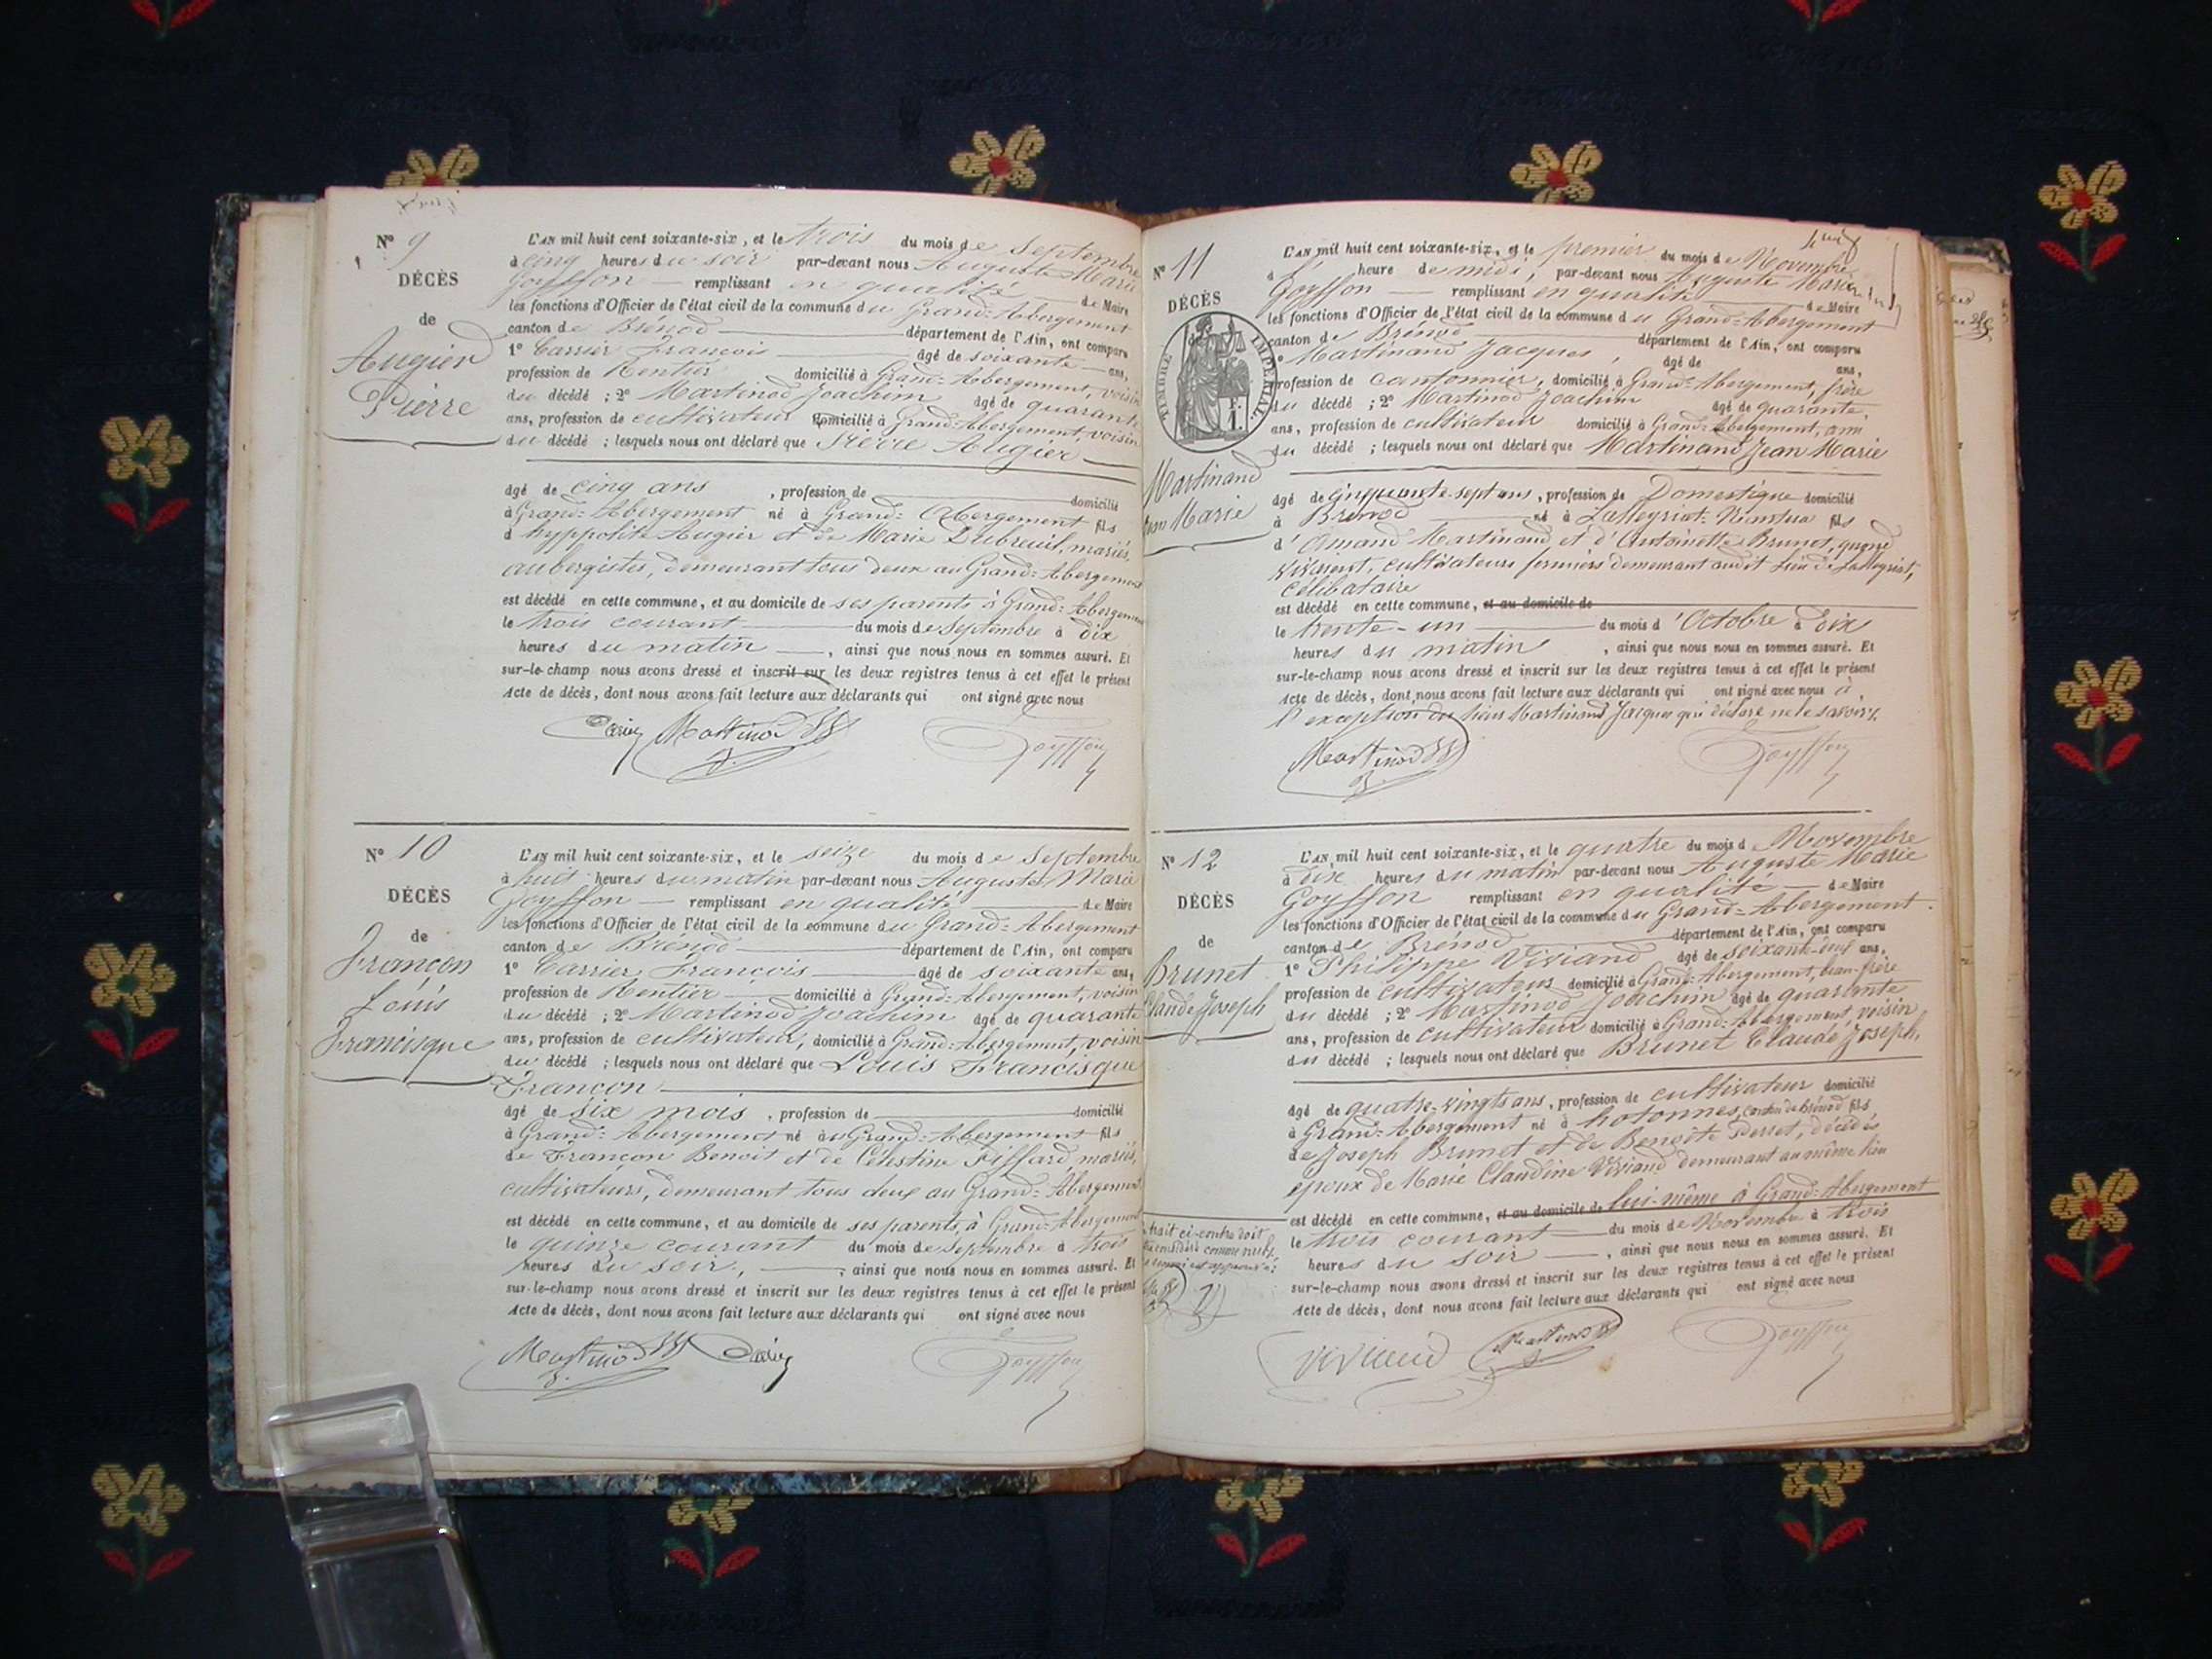 N° 9
DÉCÈS
de
Augier
Pierre
L'AN mil huit cent soixante-six, et le trois du mois de Septembre
à cinq heures du soir par-devant nous Auguste Marie
Goyffon — remplissant en qualité — de Maire
les fonctions d'Officier de l'état civil de la commune du Grand-Abergement
canton de Brénod — département de l'Ain, ont comparu
1° Carrier François — âgé de soixante — ans,
profession de Rentier domicilié à Grand-Abergement, voisin
du décédé ; 2° Martinod Joachim âgé de quarante
ans, profession de cultivateur domicilié à Grand-Abergement, voisin
du décédé ; lesquels nous ont déclaré que Pierre Augier —
âgé de cinq ans , profession de — domicilié
à Grand-Abergement né à Grand-Abergement fils
d'hyppolite Augier et de Marie Dubreuil, mariés,
aubergistes, demeurant tous deux au Grand-Abergement
est décédé en cette commune, et au domicile de ses parents à Grand-Abergement
le trois courant — du mois de Septembre à dix
heures du matin —, ainsi que nous nous en sommes assuré. Et
sur-le-champ nous avons dressé et inscrit sur les deux registres tenus à cet effet le présent
Acte de décès, dont nous avons fait lecture aux déclarants qui ont signé avec nous
Martinod Goyffon
N° 10
DÉCÈS
de
Françon
Louis
Francisque
L'AN mil huit cent soixante-six, et le seize du mois de Septembre
à huit heures du matin par-devant nous Auguste Marie
Goyffon — remplissant en qualité — de Maire
les fonctions d'Officier de l'état civil de la commune du Grand-Abergement
canton de Brénod — département de l'Ain, ont comparu
1° Carrier François — âgé de soixante ans,
profession de Rentier — domicilié à Grand-Abergement, voisin
du décédé ; 2° Martinod Joachim âgé de quarante
ans, profession de cultivateur, domicilié à Grand-Abergement, voisin
du décédé ; lesquels nous ont déclaré que Louis Francisque
Françon —
âgé de six mois , profession de — domicilié
à Grand-Abergement né au Grand-Abergement fils
de Françon Benoit et de Célestine Piffard, mariés,
cultivateurs, demeurant tous deux au Grand-Abergement
est décédé en cette commune, et au domicile de ses parents, à Grand-Abergement
le quinze courant du mois de Septembre à trois
heures du soir, —, ainsi que nous nous en sommes assuré. Et
sur-le-champ nous avons dressé et inscrit sur les deux registres tenus à cet effet le présent
Acte de décès, dont nous avons fait lecture aux déclarants qui ont signé avec nous
Martinod Goyffon
N° 11
DÉCÈS
de
TIMBRE IMPÉRIAL
1 F.
Martinand
Marie
L'AN mil huit cent soixante-six, et le premier du mois de Novembre
à heure de midi, par-devant nous Auguste Marie
Goyffon — remplissant en qualité — de Maire
les fonctions d'Officier de l'état civil de la commune du Grand-Abergement
canton de Brénod — département de l'Ain, ont comparu
1° Martinand Jacques, âgé de ans,
profession de cantonnier, domicilié à Grand-Abergement, frère
du décédé ; 2° Martinod Joachim âgé de quarante,
ans, profession de cultivateur domicilié à Grand-Abergement, ami
du décédé ; lesquels nous ont déclaré que Martinand Jean Marie
âgé de cinquante-sept ans, profession de Domestique domicilié
à Brénod — né à Lalleyriat-Nantua fils
d'Amand Martinand et d'Antoinette Brunet, quand
vivaient, cultivateurs fermiers demeurant audit Lieu de Lalleyriat,
célibataire
est décédé en cette commune, et au domicile de
le trente-un — du mois d'Octobre à dix
heures du matin , ainsi que nous nous en sommes assuré. Et
sur-le-champ nous avons dressé et inscrit sur les deux registres tenus à cet effet le présent
Acte de décès, dont nous avons fait lecture aux déclarants qui ont signé avec nous à
l'exception du sieur Martinand Jacques qui déclare ne le savoir.
Martinod Goyffon
N° 12
DÉCÈS
de
Brunet
Claude Joseph
L'AN mil huit cent soixante-six, et le quatre du mois de Novembre
à dix heures du matin par-devant nous Auguste Marie
Goyffon remplissant en qualité — de Maire
les fonctions d'Officier de l'état civil de la commune du Grand-Abergement.
canton de Brénod — département de l'Ain, ont comparu
1° Philippe Viviand âgé de soixante-neuf ans,
profession de cultivateur domicilié à Grand-Abergement, beau-frère
du décédé ; 2° Martinod Joachim âgé de quarante
ans, profession de cultivateur domicilié à Grand-Abergement, voisin
du décédé ; lesquels nous ont déclaré que Brunet Claude Joseph,
âgé de quatre-vingts ans, profession de cultivateur domicilié
à Grand-Abergement né à hotonnes, canton de Brénod fils
de Joseph Brunet et de Benoite Perret, décédés
époux de Marie Claudine Viviand demeurant au même lieu
est décédé en cette commune, et au domicile de lui-même à Grand-Abergement
le trois courant — du mois de Novembre à trois
heures du soir —, ainsi que nous nous en sommes assuré. Et
sur-le-champ nous avons dressé et inscrit sur les deux registres tenus à cet effet le présent
Acte de décès, dont nous avons fait lecture aux déclarants qui ont signé avec nous
trait ci-contre doit
considéré comme nul
Viviand Martinod Goyffon